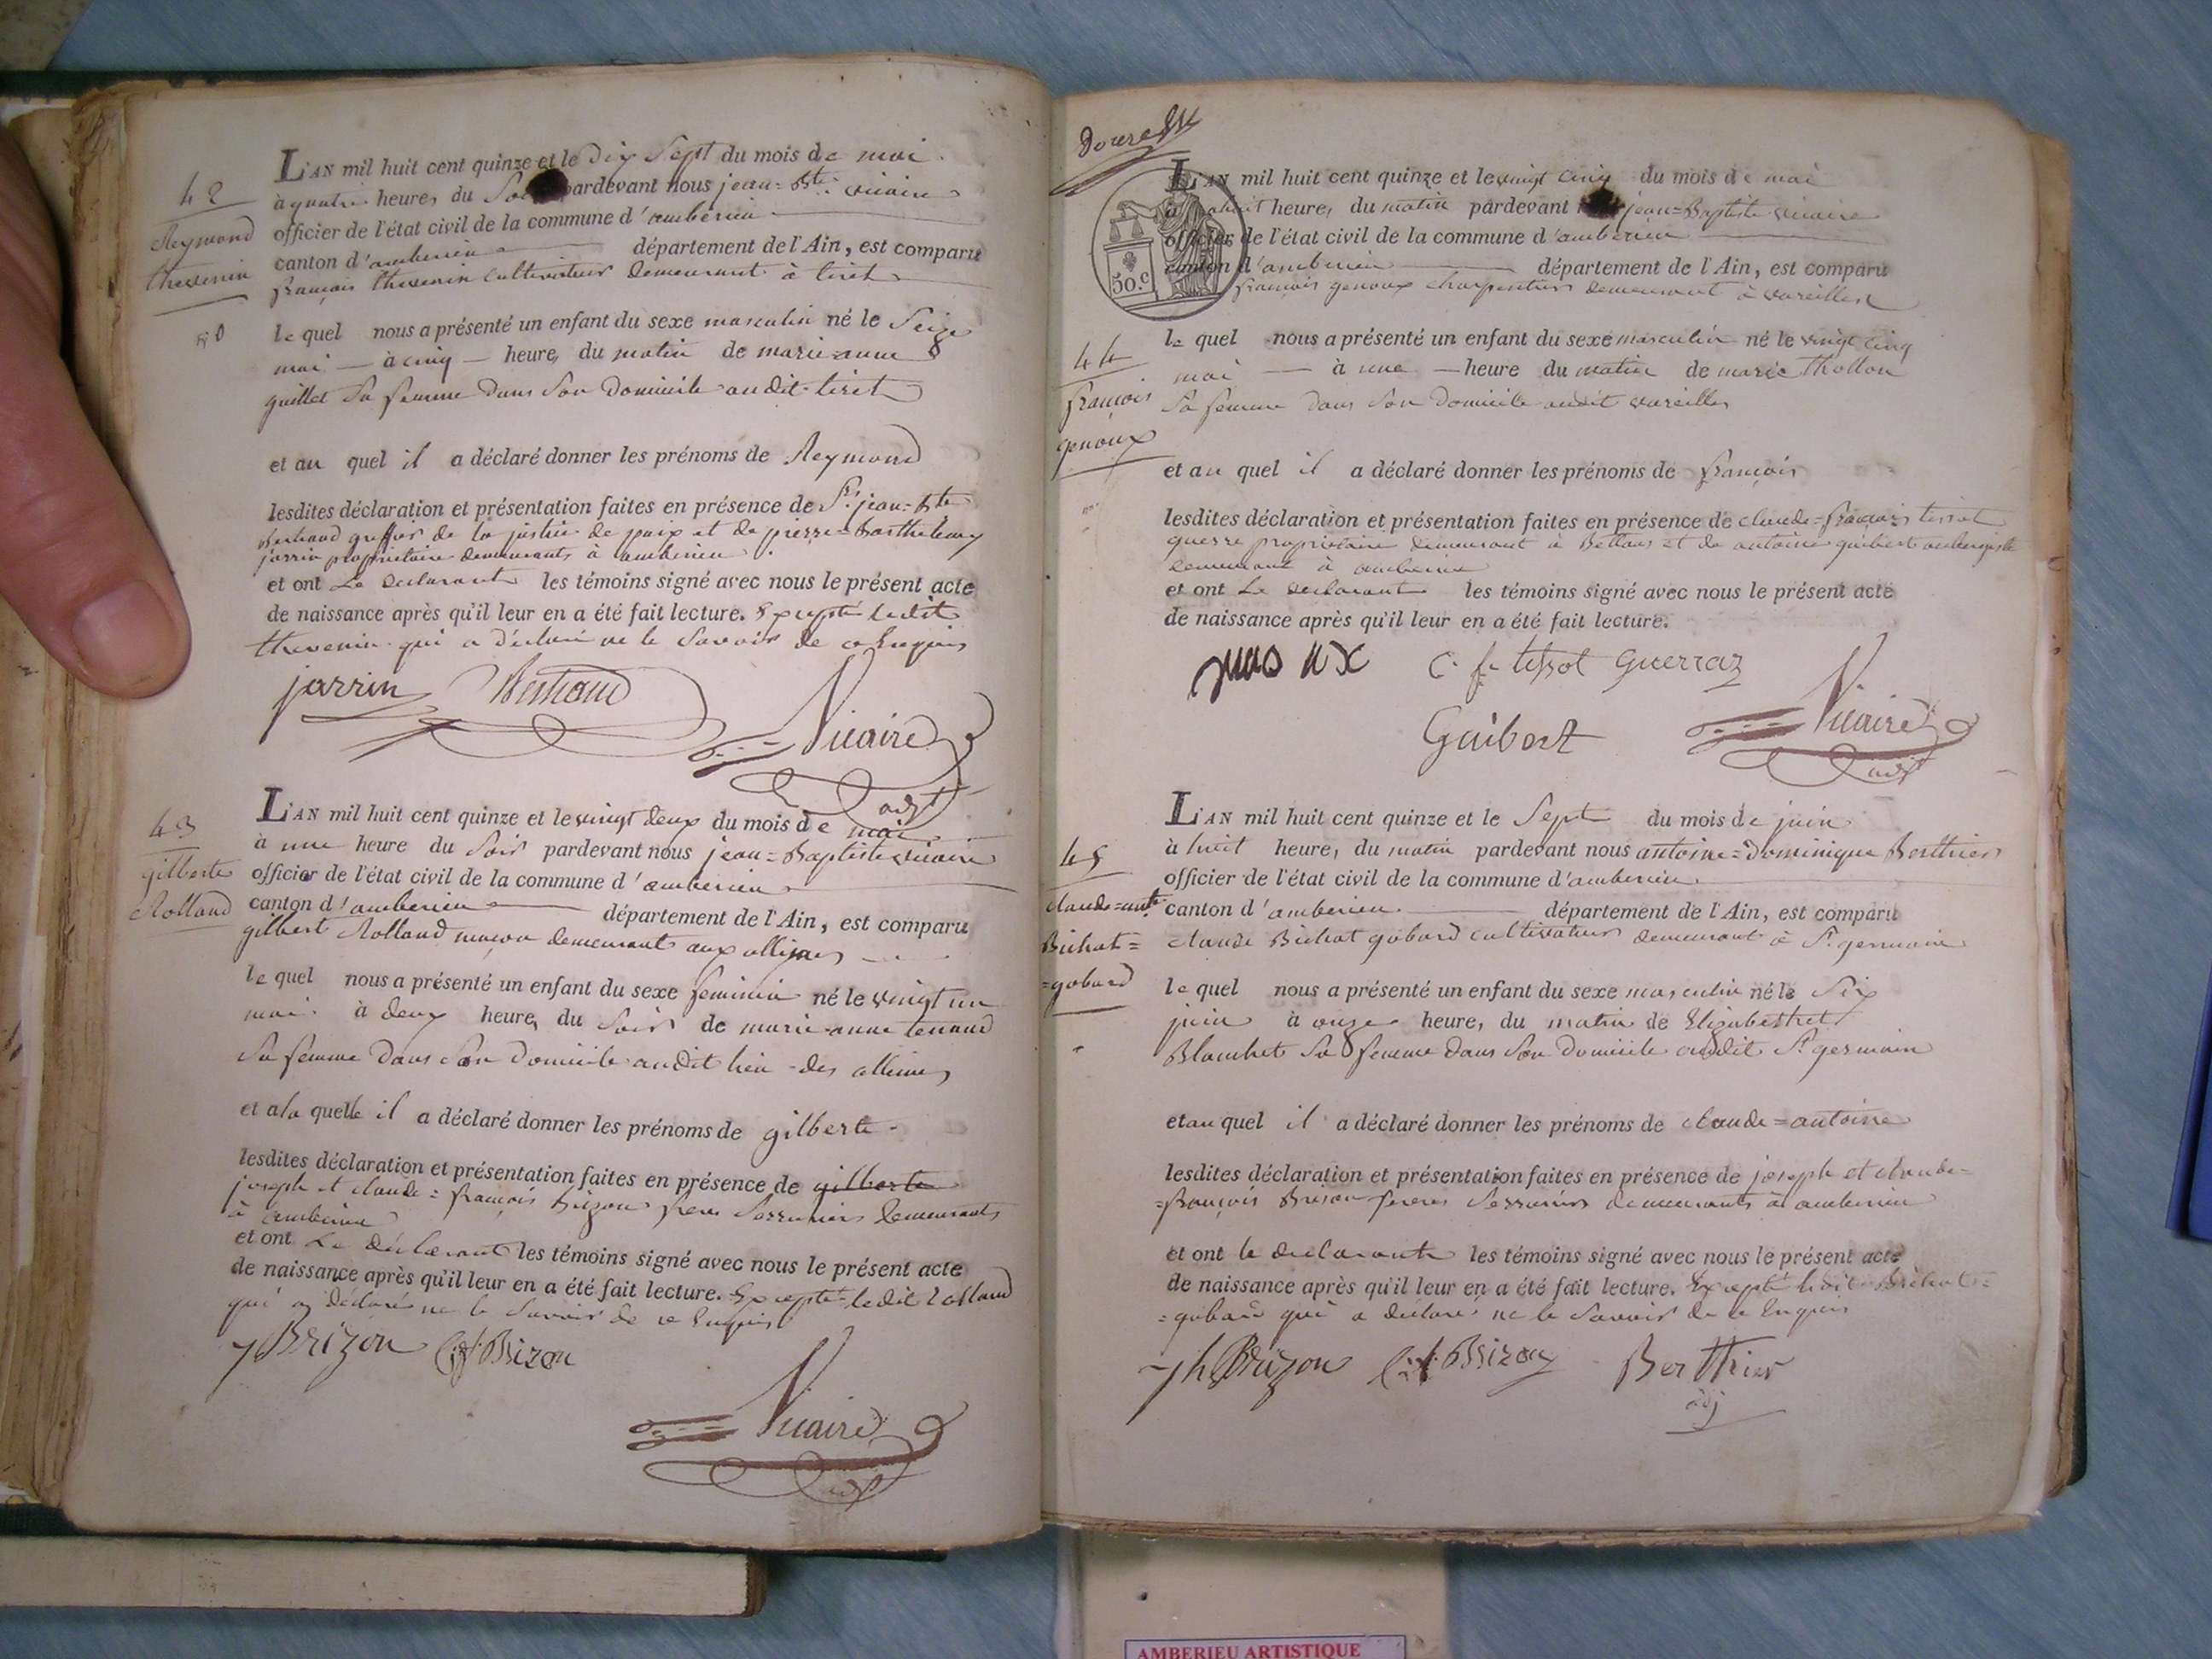 42
Reymond
thevenin
L'AN mil huit cent quinze et le dix Sept du mois de mai
à quatre heures du Soir pardevant nous jean=Bte vicaire
officier de l'état civil de la commune d'amberieu
canton d'amberieu département de l'Ain, est comparu
françois thevenin cultivateur demeurant à tiret
le quel nous a présenté un enfant du sexe masculin né le Seize
mai à cinq heures du matin de marie anne
guillet Sa femme dans Son domicile audit tiret
et au quel il a déclaré donner les prénoms de Reymond
lesdites déclaration et présentation faites en présence de Sr. jean=Bte
Bertrand greffier de la justice de paix et de pierre Barthelemy
jarrin propriétaire demeurants à amberieu.
et ont Le declarant les témoins signé avec nous le présent acte
de naissance après qu'il leur en a été fait lecture. Excepté ledit
thevenin qui a déclaré ne le Savoir de ce Enquis
jarrin Vicaire
adjt
43
gilberte
Rolland
L'AN mil huit cent quinze et le vingt deux du mois de mai
à une heure du Soir pardevant nous jean=Baptiste vicaire
officier de l'état civil de la commune d'amberieu
canton d'amberieu département de l'Ain, est comparu
gilbert Rolland maçon demeurant aux allimes
le quel nous a présenté un enfant du sexe feminin né le vingt un
mai à deux heures du Soir de marie anne tenand
Sa femme dans Son domicile audit lieu des allimes
et a la quelle il a déclaré donner les prénoms de gilberte
lesdites déclaration et présentation faites en présence de gilberte
joseph et claude=françois Brizon freres Serruriers demeurants
à amberieu
et ont Le déclarant les témoins signé avec nous le présent acte
de naissance après qu'il leur en a été fait lecture. Excepté ledit Rolland
qui a déclaré ne le Savoir de ce Enquis
jBrizon C.f. Brizon
Vicaire
adjt
50.c
44
françois
genoux
L'AN mil huit cent quinze et le vingt cinq du mois de mai
à huit heures du matin pardevant jean=Baptiste vicaire
officier de l'état civil de la commune d'amberieu
canton d'amberieu département de l'Ain, est comparu
françois genoux charpentier demeurant à vareilles
le quel nous a présenté un enfant du sexe masculin né le vingt cinq
mai à une heure du matin de marie thollon
Sa femme dans Son domicile audit vareilles
et au quel il a déclaré donner les prénoms de françois
lesdites déclaration et présentation faites en présence de claude=françois tissot
guerre propriétaire demeurant à Bettans et de antoine guibert aubergiste
demeurant à amberieu
et ont Le declarant les témoins signé avec nous le présent acte
de naissance après qu'il leur en a été fait lecture.
c. f. tissot Guerraz
Guibert Vicaire
adjt
45
claude=ant.
Bichat=
=gobard
L'AN mil huit cent quinze et le Sept du mois de juin
à huit heures du matin pardevant nous antoine=dominique Berthier
officier de l'état civil de la commune d'amberieu
canton d'amberieu département de l'Ain, est comparu
claude Bichat gobard cultivateur demeurant à St. germain
le quel nous a présenté un enfant du sexe masculin né le Six
juin à onze heures du matin de Elizabeth
Blanchet Sa femme dans Son domicile audit St. germain
et au quel il a déclaré donner les prénoms de claude=antoine
lesdites déclaration et présentation faites en présence de joseph et claude=
=françois Brison freres Serruriers demeurants à amberieu
et ont le declarant les témoins signé avec nous le présent acte
de naissance après qu'il leur en a été fait lecture. Excepté ledit Bichat=
=gobard qui a declaré ne le Savoir de ce Enquis
jh Brizon C.f. Brizon Berthier
adj
AMBERIEU ARTISTIQUE